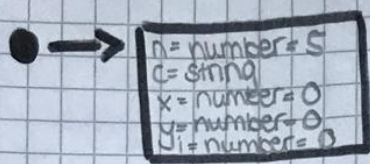 n= number= 5
c= string
x= number= 0
y= number= 0
i= number= 0